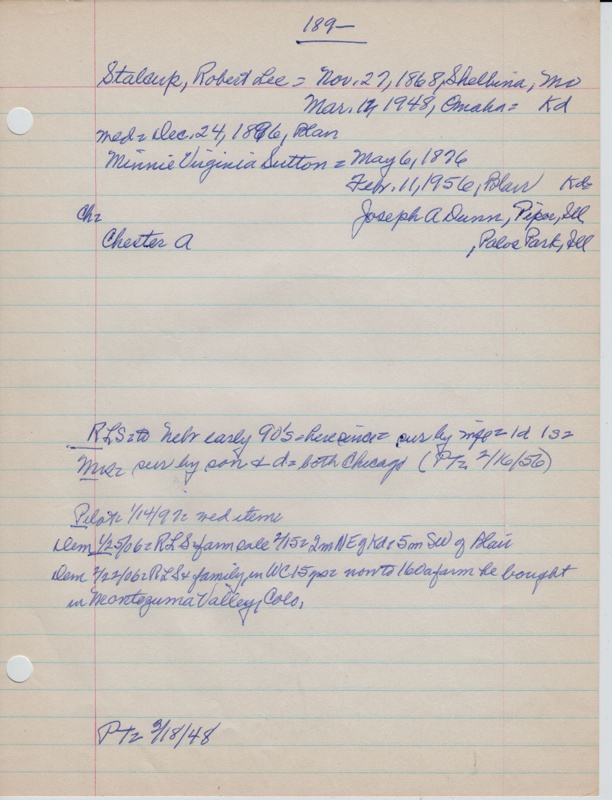 189-
Stalcup, Robert Lee = Nov. 27, 1868, Shelbina, Mo
Mar. 12, 1948, Omaha = Kd
med = Dec. 24, 1896, Blair
Minnie Virginia Sutton = May 6, 1876
Feb. 11, 1956, Blair Kd=
Ch=
Joseph A Dunn, Piper, Ill
Chester A
, Palos Park, Ill
RLS = to Nebr early 90's = here since = sur by wife = 1d 1s =
Mrs = sur by son & d = both Chicago (PT= 2/16/56)
Pilot = 1/14/97 = wed items
Dem 1/25/06 = RLS = farm sale 2/15 = 2m NE of Kd = 5m SW of Blair
Dem 2/22/06 = RLS & family, in WC 15 yrs = now to 160a farm he bought
in Montezuma Valley, Colo.
PT= 3/18/48